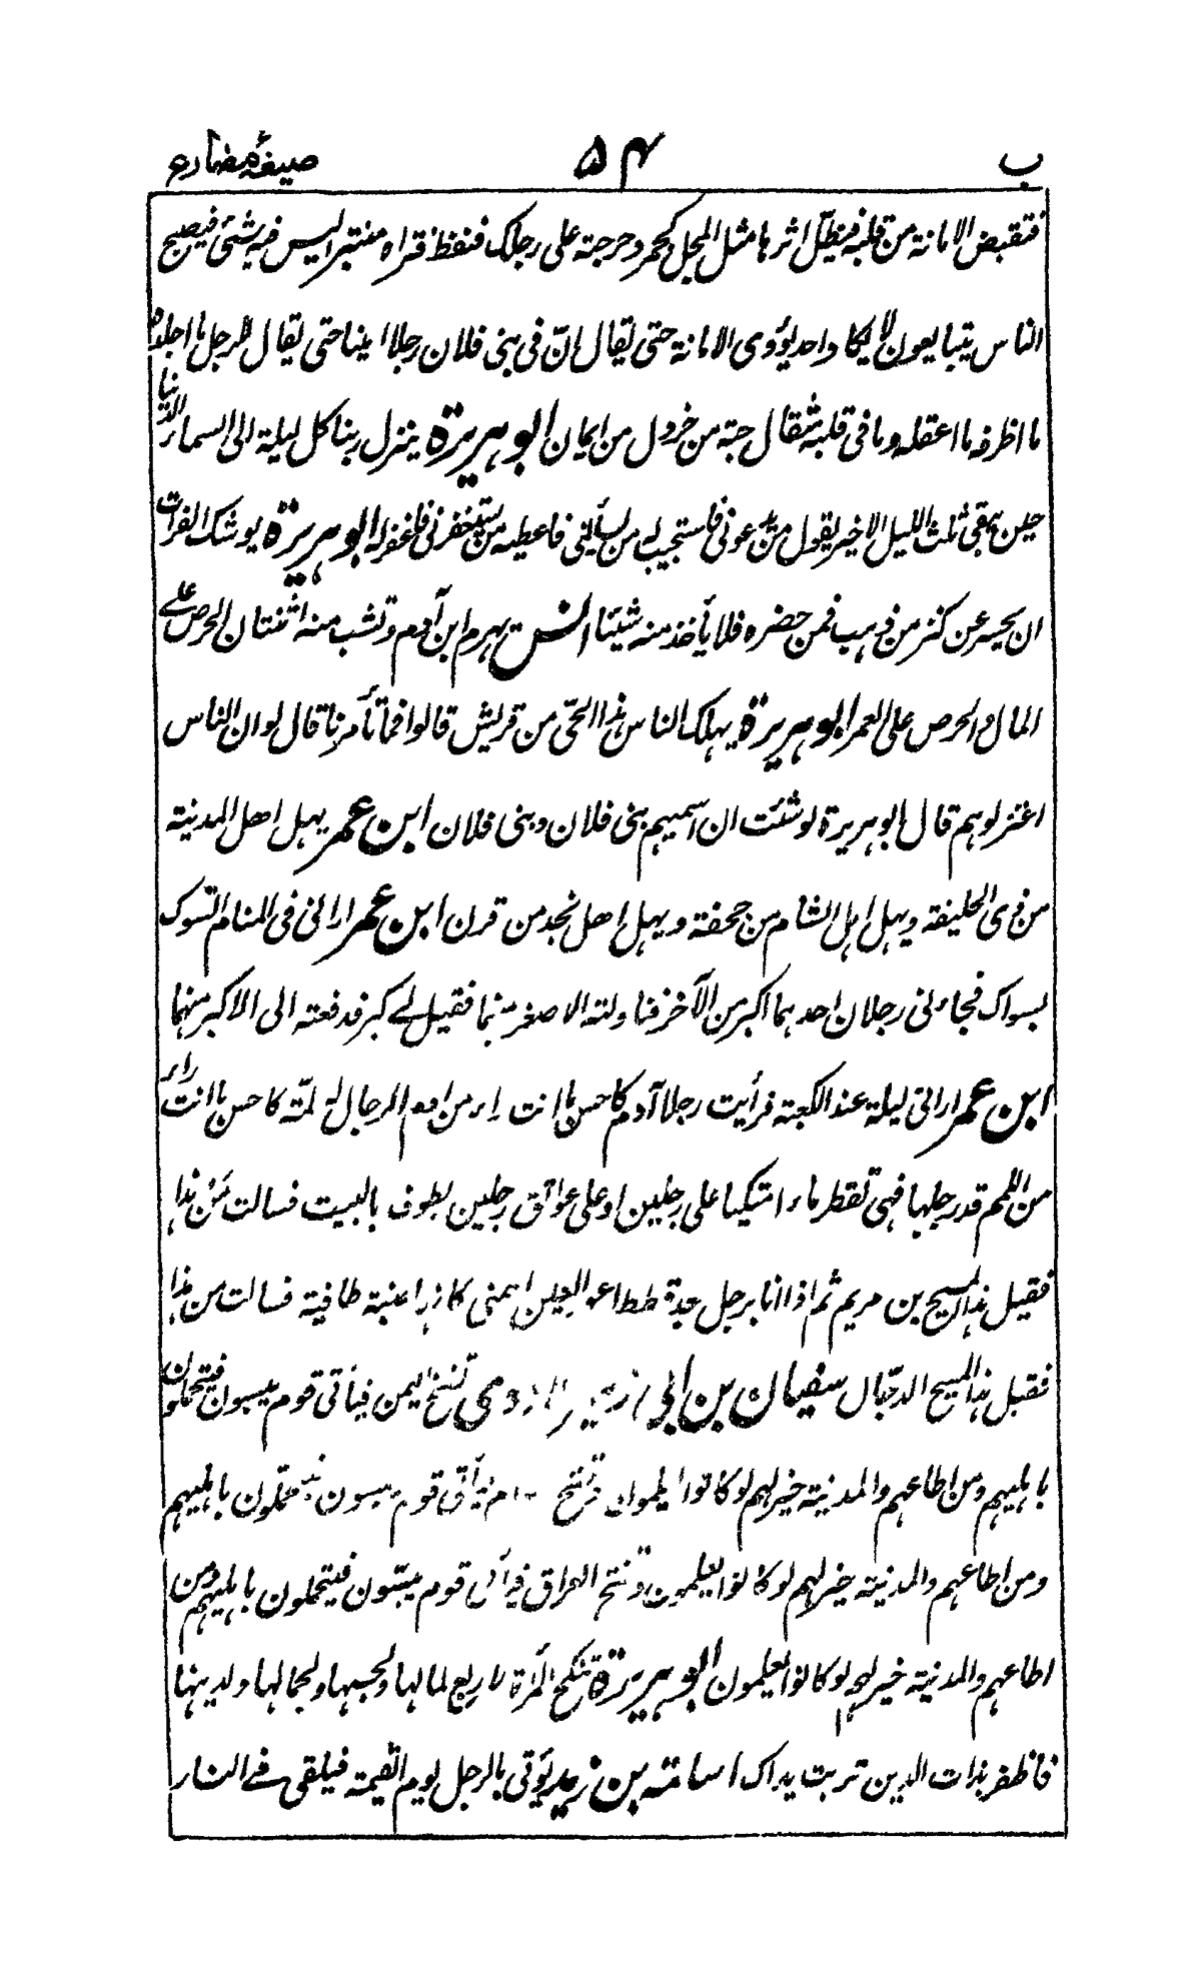 ب ۵۴ صیغۂ مضارع
فتقبض الامانة من قلبه فیظلّ اثرها مثل المجل کجمر دحرجته علی رجلک فنفظ فتراه منتبرا لیس فیه شیئ فیصبح
الناس یتبایعون لا یکاد احد یؤدی الامانة حتی یقال انّ فی بنی فلان رجلا امینا حتی یقال للرجل ما اجلده
ما اظرفه ما اعقله وما فی قلبه مثقال حبة من خردل من ایمان ابو هریرة ینزل ربنا کل لیلة الی السماء الدنیا
حین یبقی ثلث اللیل الاخیر یقول من یدعونی فاستجیب له من یسألنی فاعطیه من یستغفرنی فاغفر له ابو هریرة یوشک الفرات
ان یحسر عن کنز من ذهب فمن حضره فلا یأخذ منه شیئا انس یهرم ابن آدم وتشب منه اثنتان الحرص علے
المال والحرص علی العمر ابو هریرة یهلک الناس هذا الحیّ من قریش قالوا فما تأمرنا قال لو ان الناس
اعتزلوهم قال ابو هریرة لو شئت ان اسمیهم بنی فلان وبنی فلان ابن عمر یهل اهل المدینة
من ذی الحلیفة ویهل اهل الشام من جحفة ویهل اهل نجد من قرن ابن عمر ارانی فی المنام اتسوک
بسواک فجاءنی رجلان احدهما اکبر من الآخر فناولته الاصغر منهما فقیل لے کبر فدفعته الی الاکبر منهما
ابن عمر ارانی لیلة عند الکعبة فرأیت رجلا آدم کاحسن ما انت راء من ادم الرجال له لمّة کاحسن ما انت راء
من اللمم قد رجلها فهی تقطر ماء متکیا علی رجلین او علی عواتق رجلین یطوف بالبیت فسالت مَنْ هذا
فقیل هذا المسیح بن مریم ثم اذا انا برجل جعد قطط اعور العین الیمنی کانها عنبة طافیة فسالت من هذا
فقیل هذا المسیح الدجّال سفیان بن ابی زهیر الازدی تفتح الیمن فیأتی قوم یبسون فیتحملون
باهلیهم ومن اطاعهم والمدینة خیر لهم لو کانوا یعلمون وتفتح الشام فیأتی قوم یبسون فیتحملون باهلیهم
ومن اطاعهم والمدینة خیر لهم لو کانوا یعلمون وتفتح العراق فیأتی قوم یبسّون فیتحملون باهلیهم ومن
اطاعهم والمدینة خیر لهم لو کانوا یعلمون ابو هریرة تنکح المرأة لاربع لمالها ولحسبها ولجمالها ولدینها
فاظفر بذات الدین تربت یداک اسامة بن زید یؤتی بالرجل یوم القیمة فیلقی فے النار